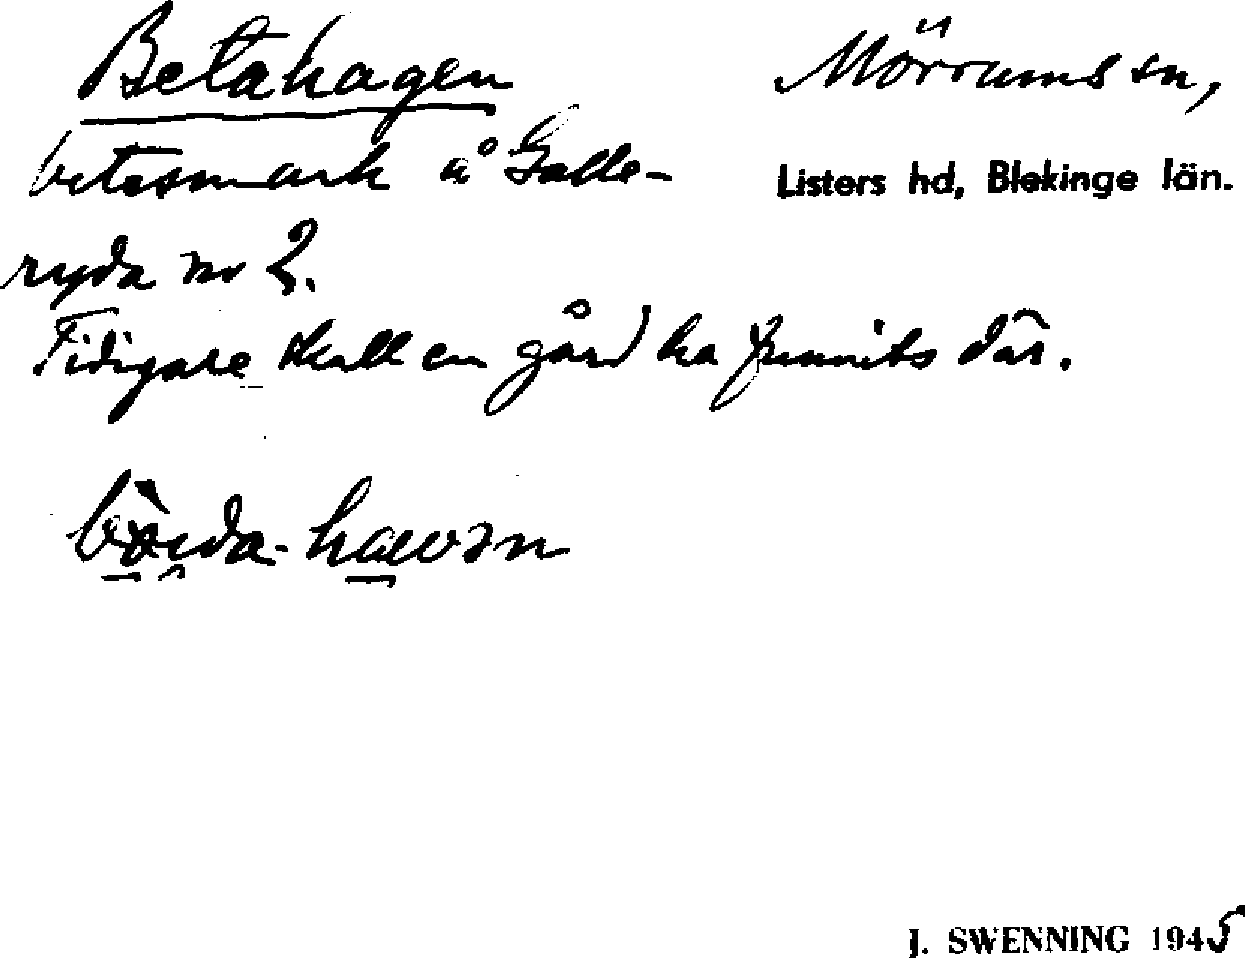 Betahagen
Mörrums sn,
betesmark å Galle-
Listers hd, Blekinge län.
ryda nr 2.
Tidigare skall en gård ha funnits där.
J. SWENNING 1945